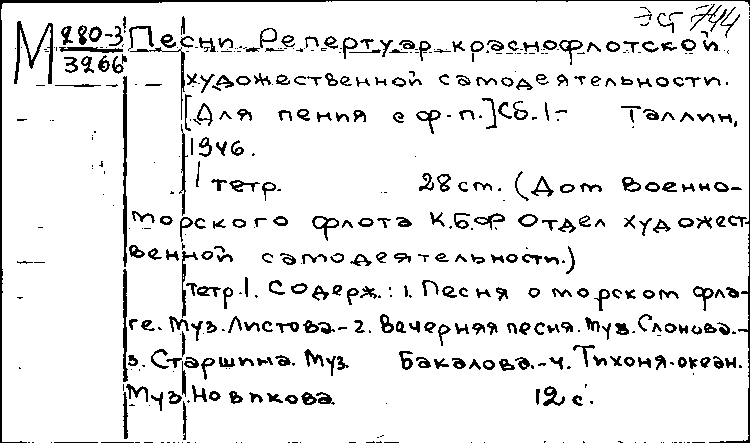 ЭСТ 744
М 280-3 Песни. Репертуар краснофлотской
3266
художественной самодеятельности.
[Для пения с ф.-п.] Сб. 1 – Таллин,
1946.
1 тетр. 28 ст. (Дом Военно-
морского флота К.Б.Ф. Отдел художест-
венной самодеятельности.)
Тетр. 1. Содерж.: 1. Песня о морском фла-
ге. Муз. Листова. – 2. Вечерняя песня. Муз. Слонова. –
3. Старшина. Муз. Бакалова. – 4. Тихоня-океан.
Муз. Новикова. 12 с.